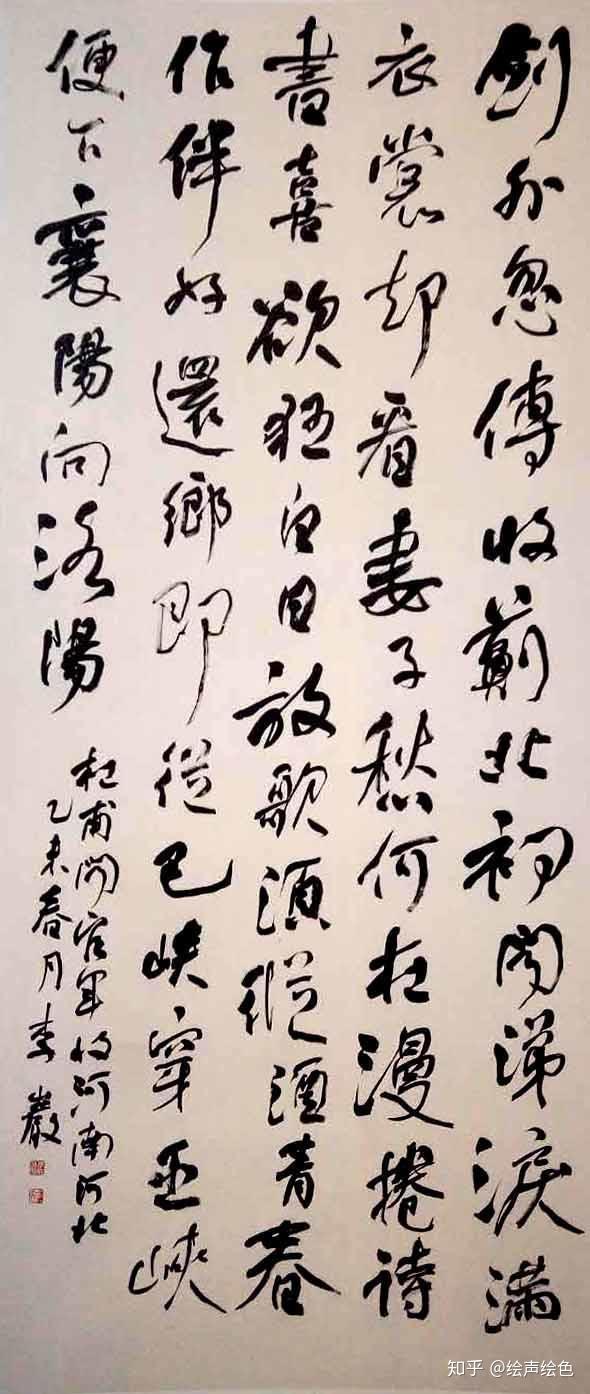 劍外忽傳收薊北初聞涕淚滿
衣裳却看妻子愁何在漫捲詩
書喜欲狂白日放歌須縱酒青春
作伴好還鄉即從巴峽穿巫峽
便下襄陽向洛陽
杜甫聞官軍收河南河北
乙未春月李巖
知乎 @绘声绘色